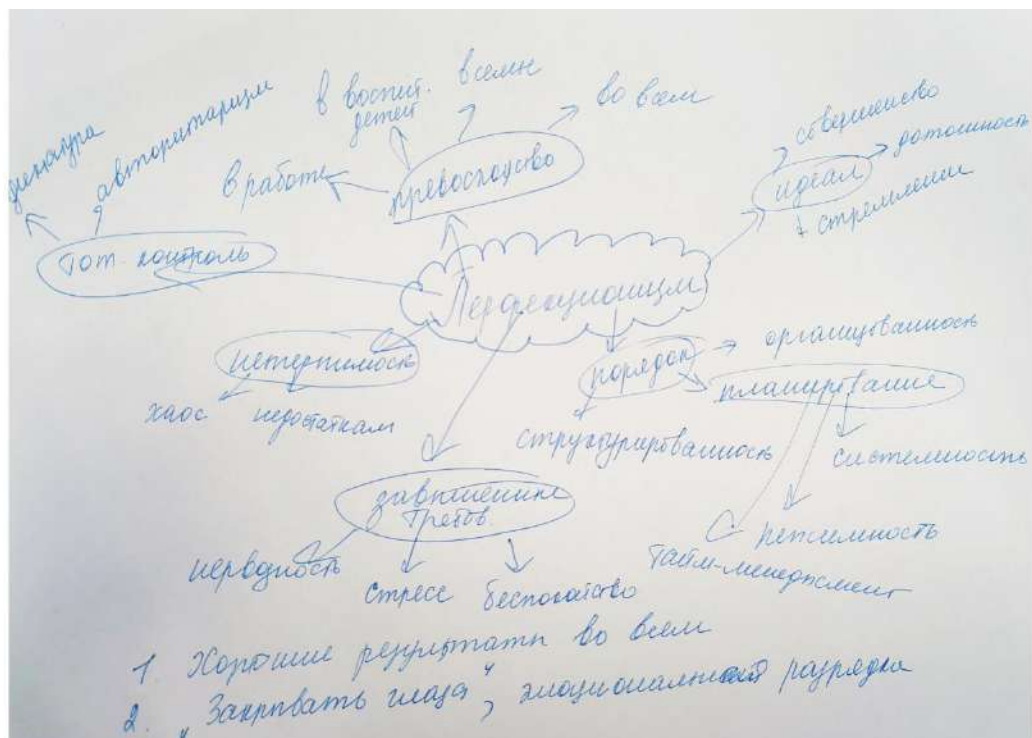 диктатура
авторитаризм
тот. контроль
в работе
в воспит.
детей
всемн
во всем
превосходство
совершенство
идеал
дотошность
стремление
Перфекционизм
нетерпимость
хаос
недостаткам
порядок
организованность
планирование
структурированность
системность
режимность
тайм-менеджмент
завышенные
требов.
нервозность
стресс
беспокойство
1 Хорошие результаты во всем
2. „Закрывать глаза“, эмоциональная разрядка